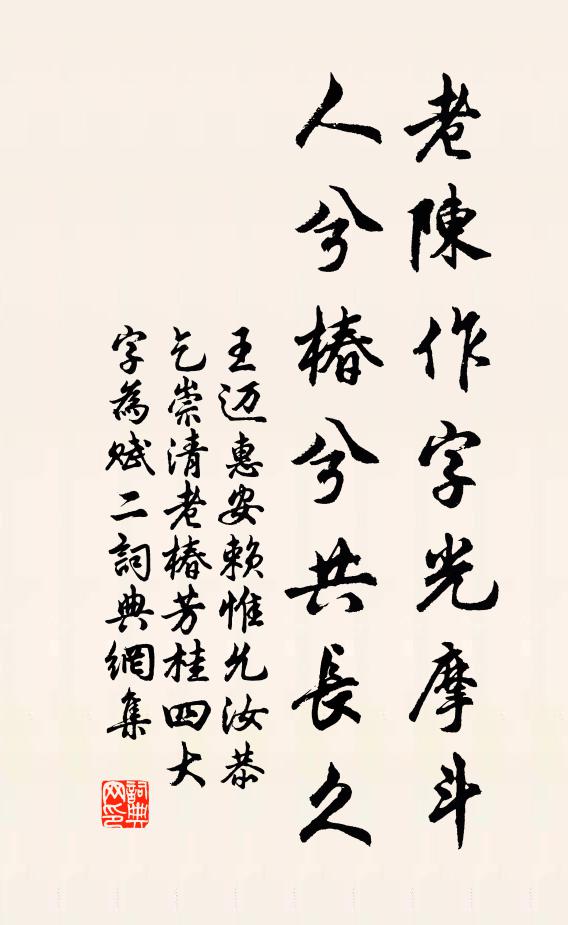 老陳作字光摩斗
人兮椿兮共長久
王迈惠安赖惟允汝恭
乞崇清老椿芳桂四大
字為赋二詞典網集
詞典网印